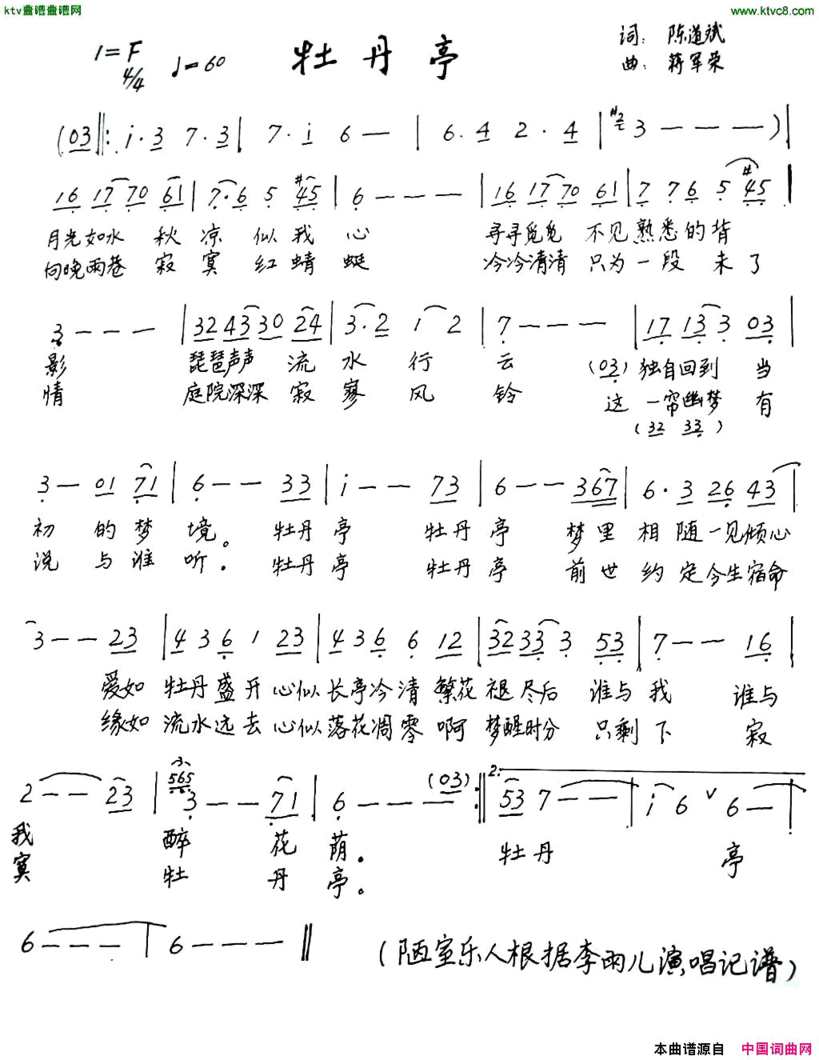 ktv壹谱壹谱网
www.ktvc8.com
1=F 4/4 ♩=60
牡丹亭
词：陈道斌
曲：蒋军荣
(03‖: i·3 7·3 | 7·i 6— | 6·4 2·4 | #2 3———)|
16 17 70 61 | 7·6 5 #45 | 6——— | 16 17 70 61 | 7 76 5 #45 |
月光如水 秋凉似我心 寻寻觅觅 不见熟悉的背
向晚雨巷 寂寞红蜻蜓 冷冷清清 只为一段未了
3——— | 32 43 30 24 | 3·2 1 2 | 7——— | 17 13 3 03 |
影 琵琶声声 流水行云 (03) 独自回到 当
情 庭院深深 寂寥风铃 这一帘幽梦 有
(32 33)
3— 01 71 | 6—— 33 | i—— 73 | 6—— 367 | 6·3 26 43 |
初 的梦境。 牡丹亭 牡丹亭 梦里相随一见倾心
说 与谁听. 牡丹亭 牡丹亭 前世约定今生宿命
3—— 23 | 4 3 6 1 23 | 4 3 6 6 12 | 32 33 3 53 | 7—— 16 |
爱如 牡丹盛开 心似长亭冷清 繁花褪尽后 谁与我 谁与
缘如 流水远去 心似落花凋零 啊 梦醒时分 只剩下 寂
2—— 23 | 565 3—— 71 | 6——— (03) :‖ 2. 53 7—— | i 6 ∨ 6— |
我 醉 花荫。 牡丹 亭
寞 牡 丹亭。
6——— | 6——— ‖
(陋室乐人根据李雨儿演唱记谱)
本曲谱源自 中国词曲网